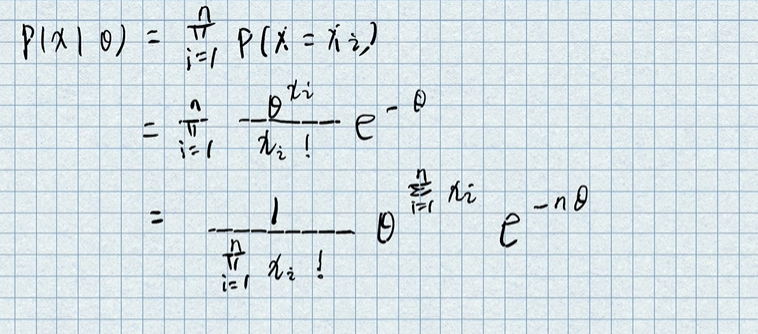 P(x|θ) = ∏_{i=1}^{n} P(X = x_i)
= ∏_{i=1}^{n} θ^{x_i} / x_i ! e^{-θ}
= 1 / ∏_{i=1}^{n} x_i ! θ^{∑_{i=1}^{n} x_i} e^{-nθ}